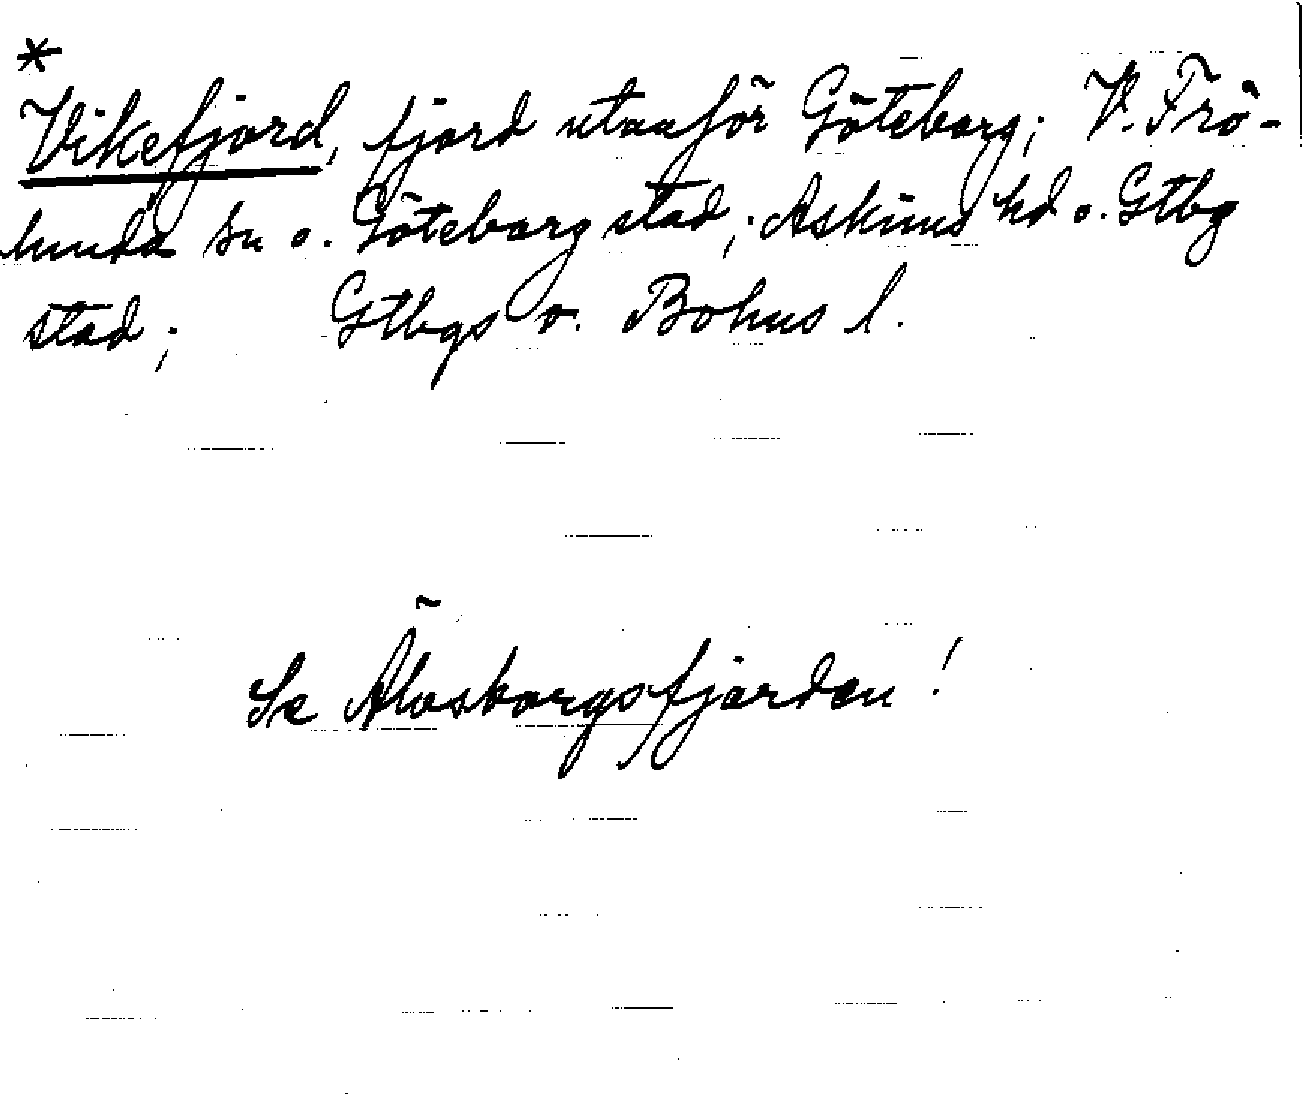 *
Vikefjord, fjord utanför Göteborg; V. Frö-
lunda sn o. Göteborg stad; Askims hd o. Gtbg
stad; Gtbgs o. Bohus l.
Se Älvsborgsfjärden!